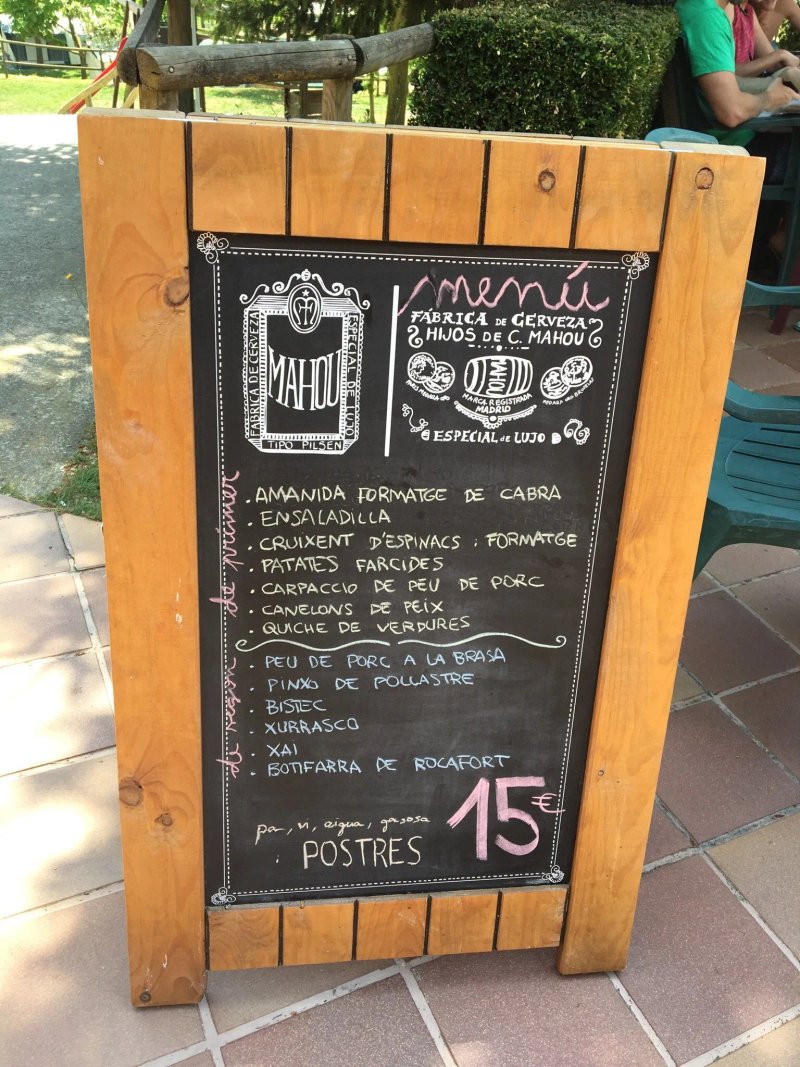 menú
FÁBRICA DE CERVEZA
HIJOS DE C. MAHOU
MAHOU
FÁBRICA DE CERVEZA
ESPECIAL DE LUJO
TIPO PILSEN
MARCA REGISTRADA
MADRID
ESPECIAL DE LUJO
de primer
. AMANIDA FORMATGE DE CABRA
. ENSALADILLA
. CRUIXENT D'ESPINACS i FORMATGE
. PATATES FARCIDES
. CARPACCIO DE PEU DE PORC
. CANELONS DE PEIX
. QUICHE DE VERDURES
de segon
. PEU DE PORC A LA BRASA
. PINXO DE POLLASTRE
. BISTEC
. XURRASCO
. XAI
. BOTIFARRA DE ROCAFORT
pa, vi, aigua, gasosa
i POSTRES
15€